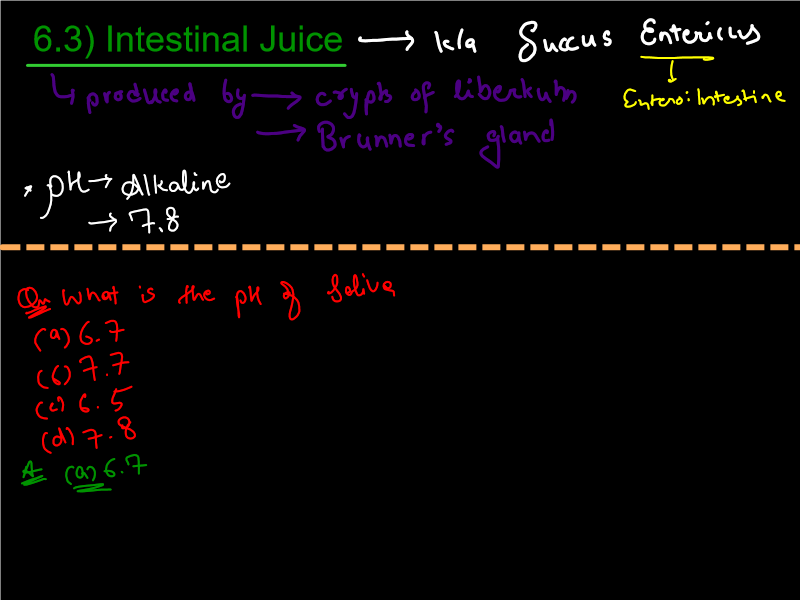 6.3) Intestinal Juice → k/a Succus Entericus
↓
Entero: Intestine
↳ produced by → crypts of liberkuhs
→ Brunner's gland
* pH → Alkaline
→ 7.8
Qu What is the pH of Saliva
(a) 6.7
(b) 7.7
(c) 6.5
(d) 7.8
A (a) 6.7